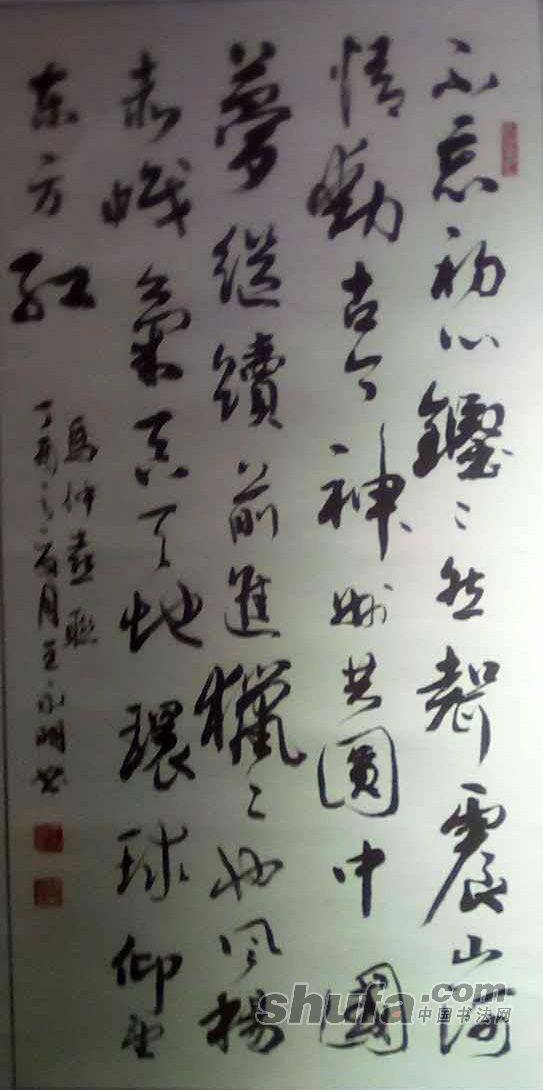 不忘初心鏗々然聲震山河
情動古今神州共圓中國
夢继續前進獵々也风揚
赤幟氣貫天地環球仰望
东方红
馬仲 聯
丁酉 月王永明书
shufa.com
中国书法网